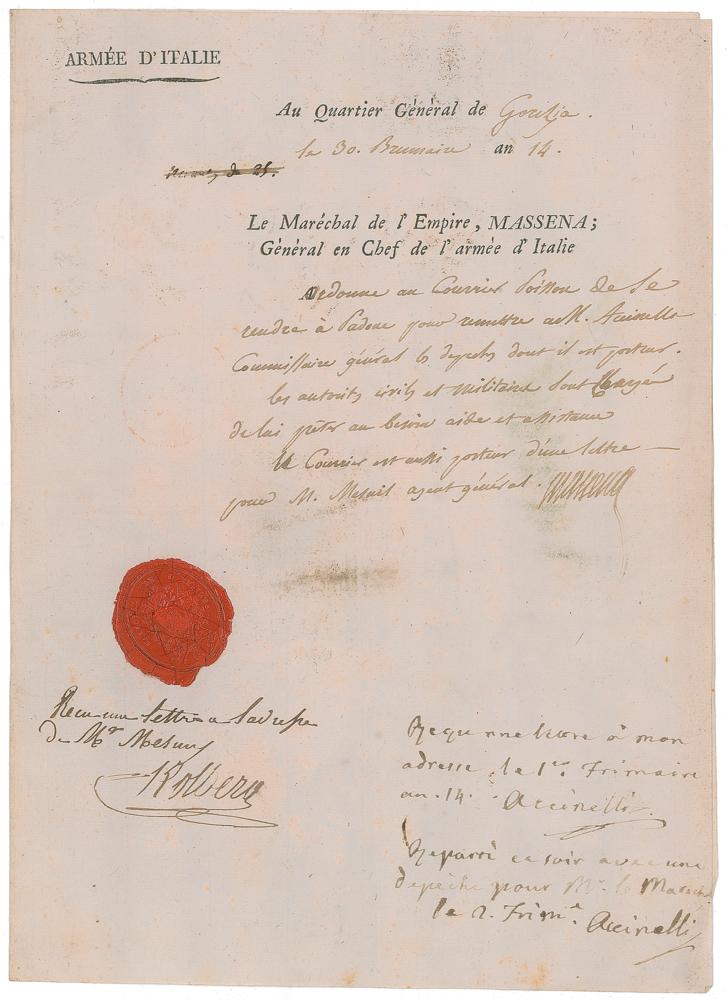 ARMÉE D'ITALIE
Au Quartier Général de Goritja.
le 30. Brumaire an 14.
de 25.
Le Maréchal de l'Empire, MASSENA;
Général en Chef de l'armée d'Italie
Ordonne au Courrier Poisson de Se
rendre à Padoue pour remettre a M. Accinelli
Commissaire général les depeches dont il est porteur.
les autorités civiles et militaires sont chargées
de lui prêter au besoin aide et assistance
le Courrier est aussi porteur d'une lettre
pour M. Mesnil agent général. Massena
Recu une lettre a ladresse
de Mr. Mesny
Reçu une lettre à mon
adresse le 1er. Frimaire
an. 14. Accinelli
Reparti ce soir avec une
depêche pour Mr. le Marechal
le 2. Frim.e Accinelli